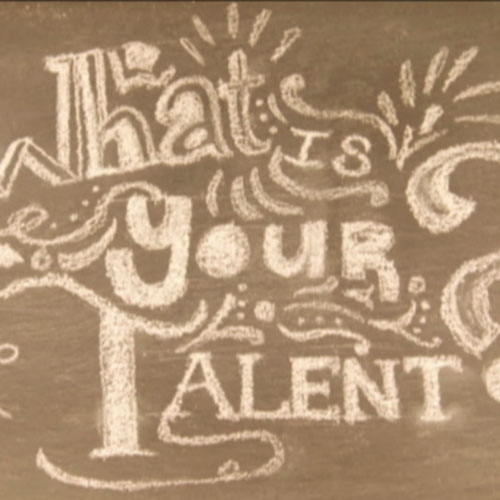 What IS
YOUR
TALENT?